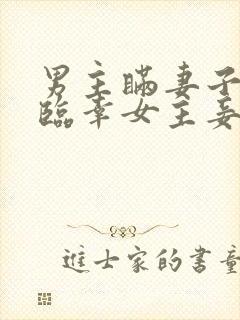 男主瞒妻子
临幸女主妾
进士家的书童